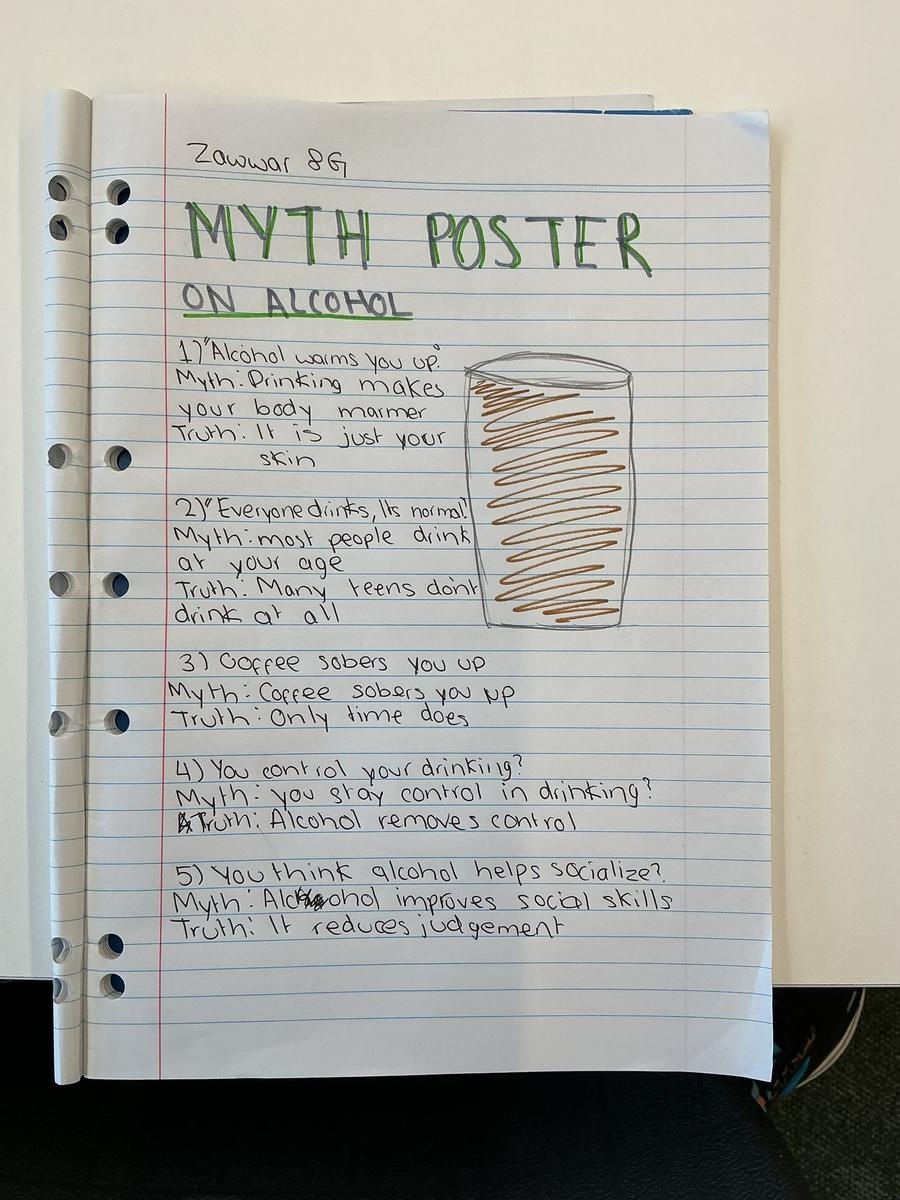 Zawwar 8G
MYTH POSTER
ON ALCOHOL
1) "Alcohol warms you up."
Myth: Drinking makes
your body marmer
Truth: It is just your
skin
2) "Everyone drinks, Its normal"
Myth: most people drink
at your age
Truth: Many teens don't
drink at all
3) Coffee sobers you up
Myth: Coffee sobers you up
Truth: Only time does
4) You control your drinking?
Myth: you stay control in drinking?
Truth: Alcohol removes control
5) You think alcohol helps socialize?
Myth: Alcohol improves social skills
Truth: It reduces judgement